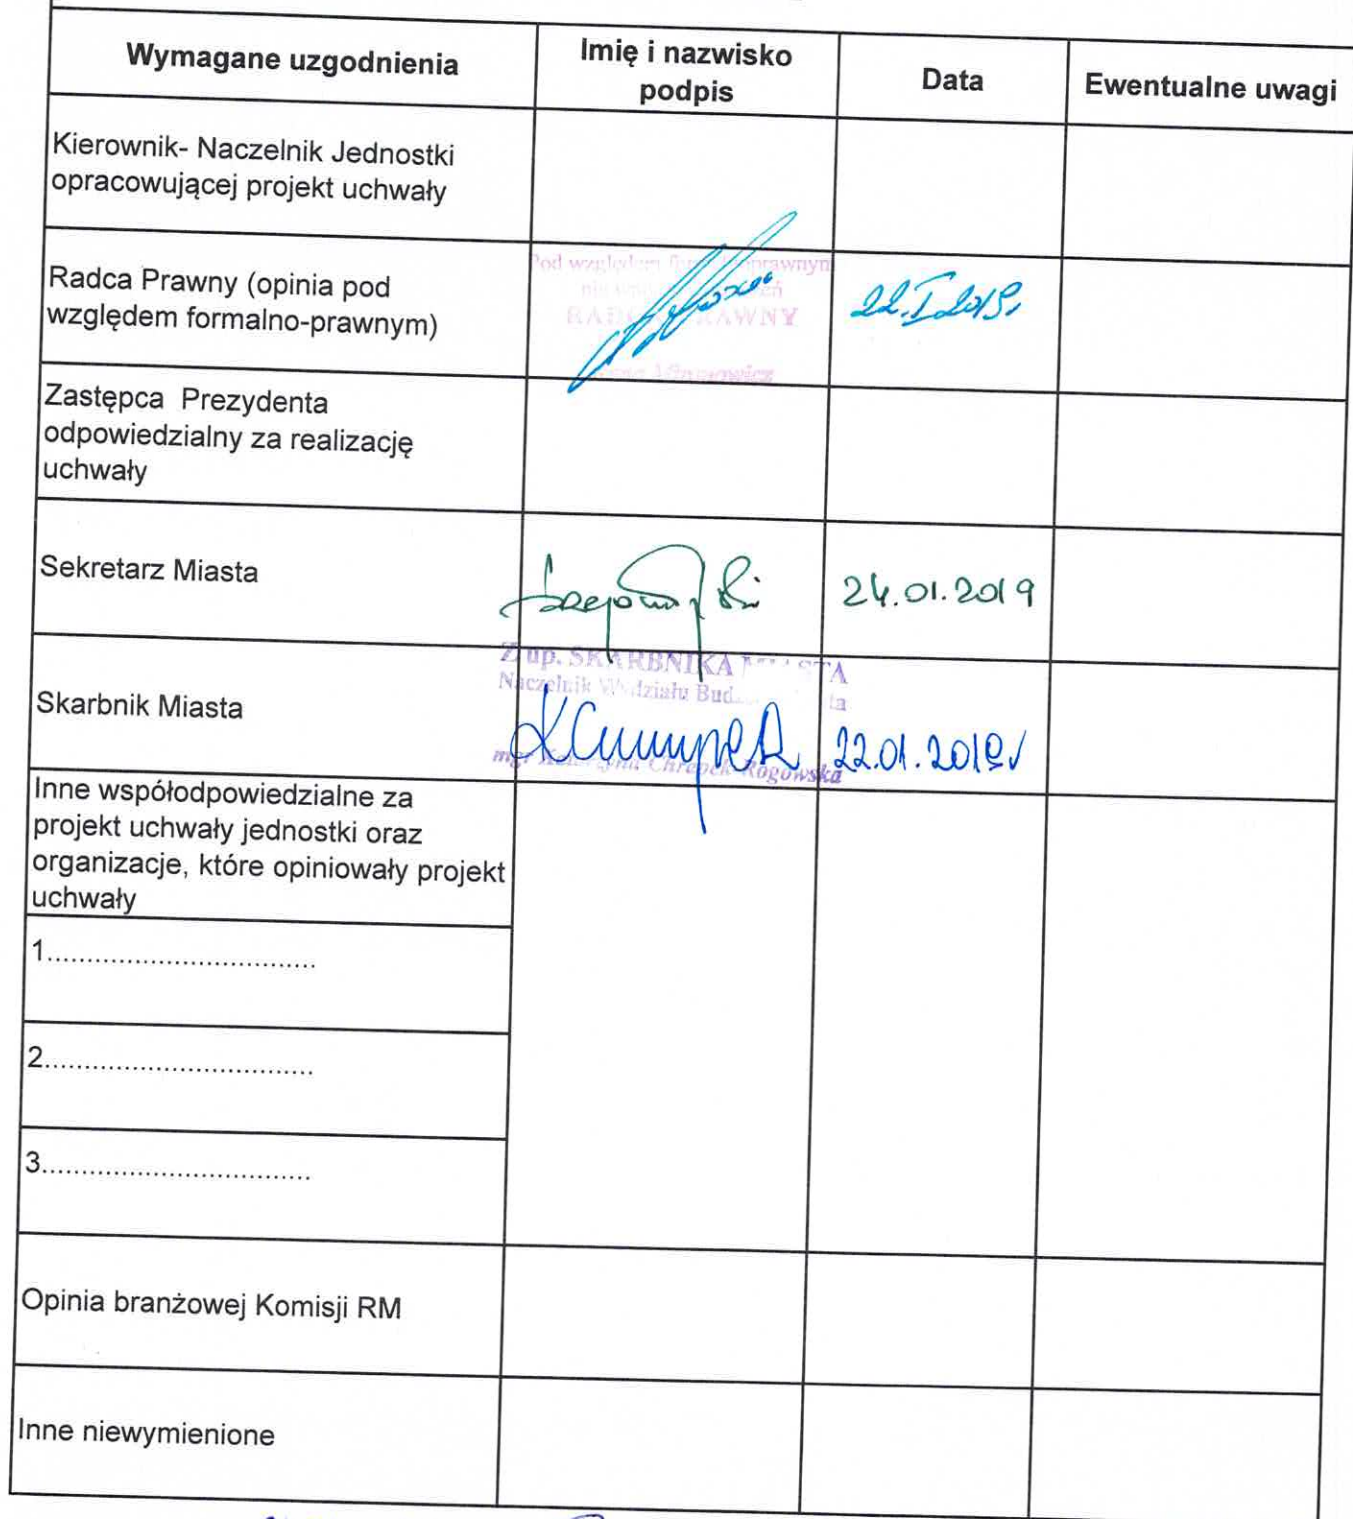 Wymagane uzgodnienia
Imię i nazwisko
podpis
Data
Ewentualne uwagi
Kierownik- Naczelnik Jednostki
opracowującej projekt uchwały
Radca Prawny (opinia pod
względem formalno-prawnym)
Pod względem
RADCA PRAWNY
22.I.2019r
Zastępca Prezydenta
odpowiedzialny za realizację
uchwały
Sekretarz Miasta
24.01.2019
Skarbnik Miasta
Z up. SKARBNIKA MIASTA
Naczelnik Wydziału
mgr Katarzyna Chrepek-Rogowska
22.01.2019r
Inne współodpowiedzialne za
projekt uchwały jednostki oraz
organizacje, które opiniowały projekt
uchwały
1..................................
2..................................
3..................................
Opinia branżowej Komisji RM
Inne niewymienione